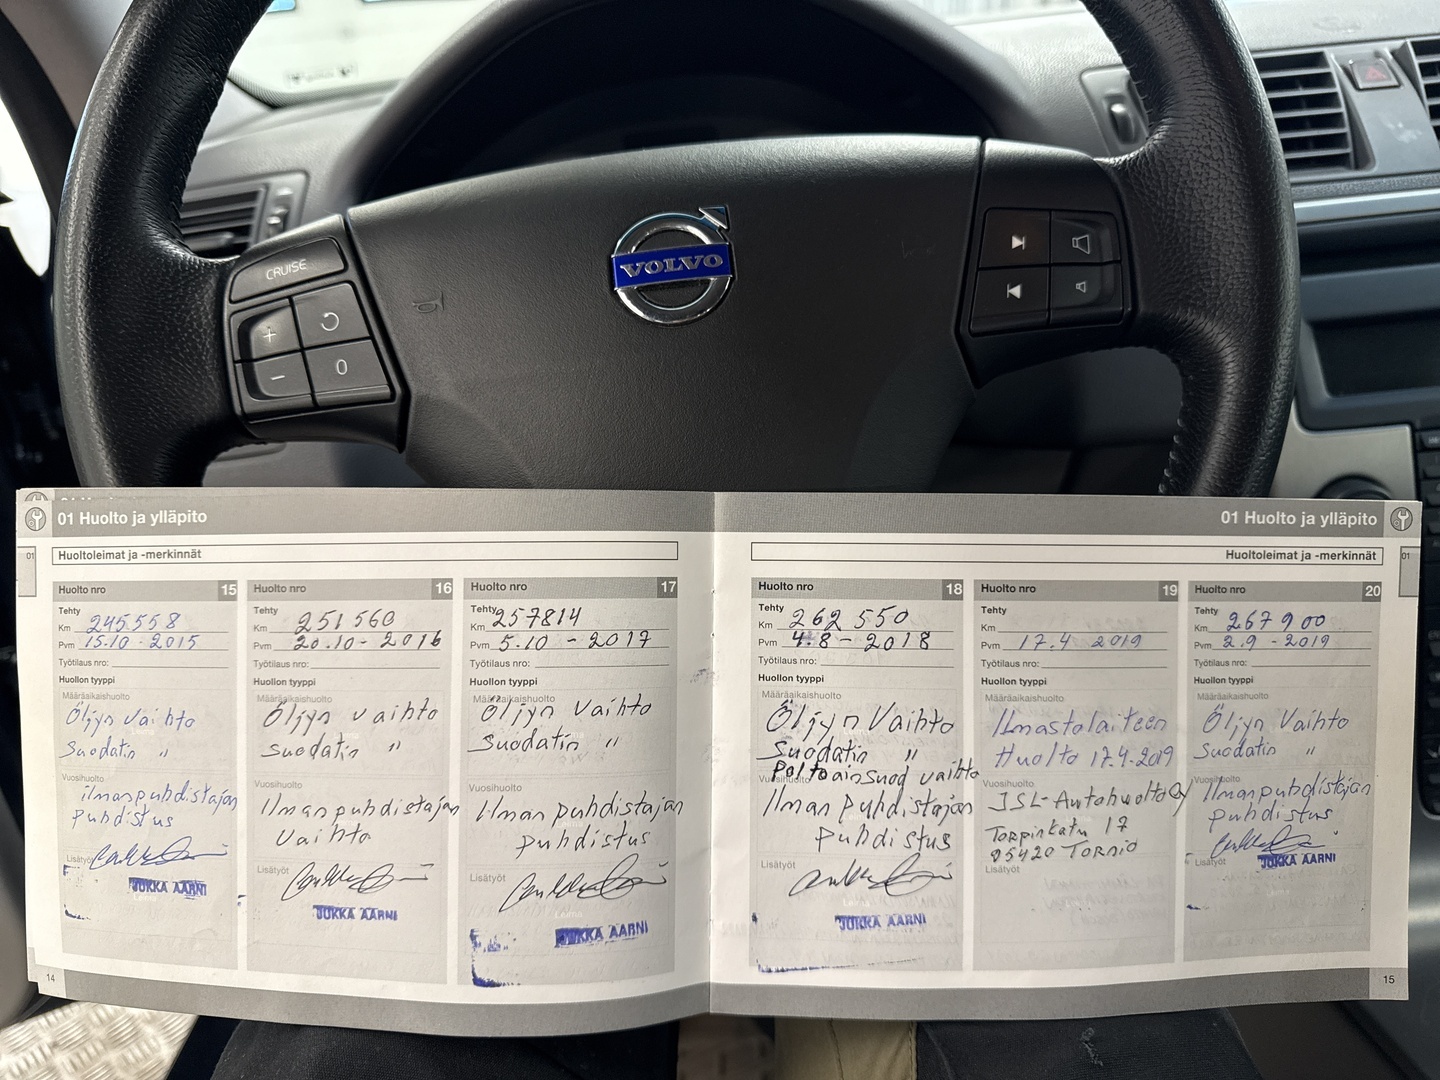 CRUISE
+
-
0
VOLVO
01 Huolto ja ylläpito
01
Huoltoleimat ja -merkinnät
Huolto nro 15
Tehty
Km 245558
Pvm 15.10-2015
Työtilaus nro:
Huollon tyyppi
Määräaikaishuolto
Öljyn Vaihto
Suodatin "
Vuosihuolto
ilmanpuhdistajan
puhdistus
Lisätyöt
JUKKA AARNI
Leima
14
Huolto nro 16
Tehty
Km 251560
Pvm 20.10-2016
Työtilaus nro:
Huollon tyyppi
Määräaikaishuolto
Öljyn vaihto
suodatin "
Vuosihuolto
Ilmanpuhdistajan
Vaihto
Lisätyöt
JUKKA AARNI
Huolto nro 17
Tehty
Km 257814
Pvm 5.10-2017
Työtilaus nro:
Huollon tyyppi
Määräaikaishuolto
Öljyn Vaihto
Suodatin "
Vuosihuolto
Ilmanpuhdistajan
puhdistus
Lisätyöt
Leima
JUKKA AARNI
01 Huolto ja ylläpito
01
Huoltoleimat ja -merkinnät
Huolto nro 18
Tehty
Km 262 550
Pvm 4.8-2018
Työtilaus nro:
Huollon tyyppi
Määräaikaishuolto
Öljyn Vaihto
Suodatin "
Poltoainsuod vaihto
Vuosihuolto
Ilman puhdistajan
puhdistus
Lisätyöt
JUKKA AARNI
Huolto nro 19
Tehty
Km
Pvm 17.4 2019
Työtilaus nro:
Huollon tyyppi
Määräaikaishuolto
Ilmastolaiteen
Huolto 17.4-2019
Vuosihuolto
JSL-Autohuolto oy
Torpinkatu 17
95420 Tornio
Lisätyöt
Huolto nro 20
Tehty
Km 267900
Pvm 2.9-2019
Työtilaus nro:
Huollon tyyppi
Määräaikaishuolto
Öljyn Vaihto
Suodatin "
Vuosihuolto
Ilmanpuhdistajan
puhdistus
Lisätyöt
JUKKA AARNI
15